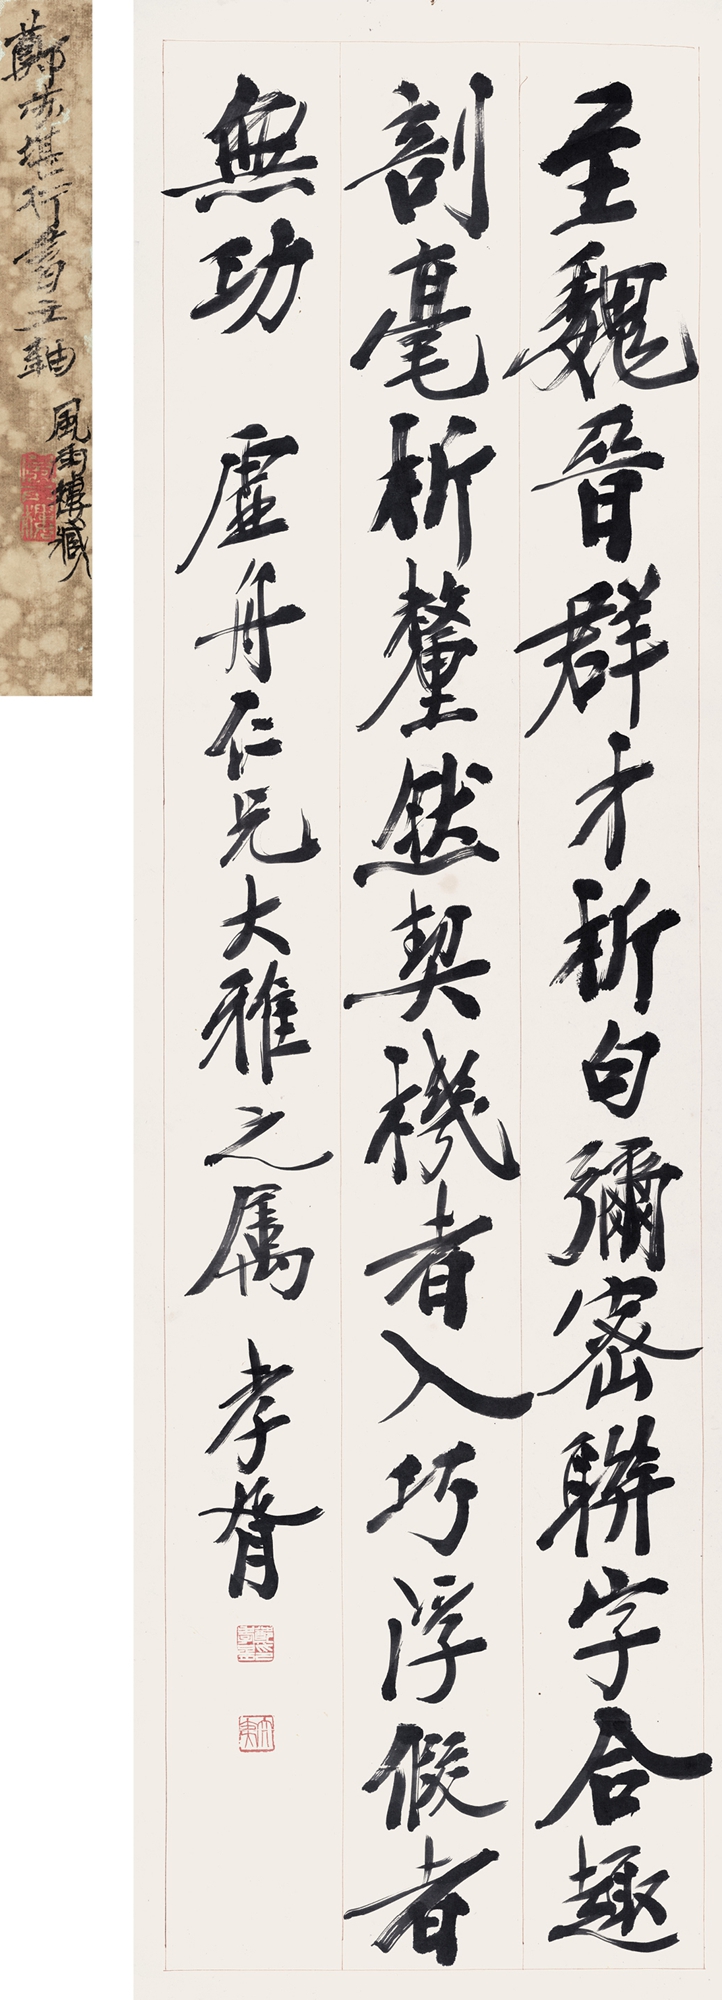 至魏晉群才析句彌密聯字合趣
剖毫析釐然契機者入巧浮假者
無功 虛舟仁兄大雅之屬 孝胥
鄭太夷行書立軸
風雨樓藏